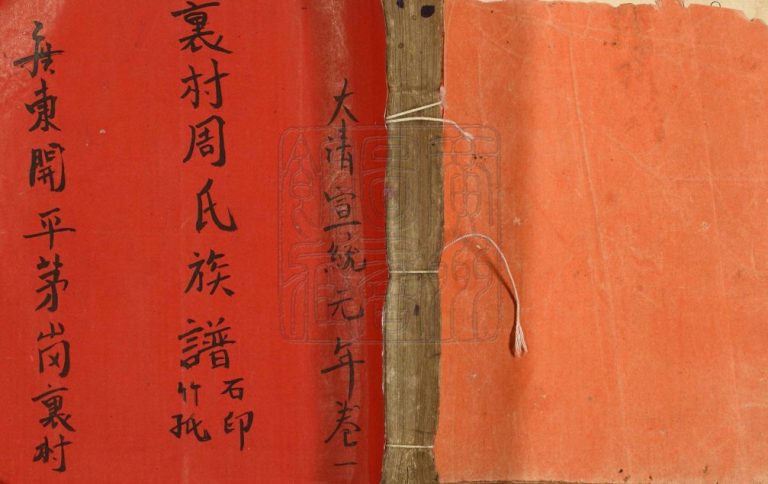 大清宣統元年卷一
裏村周氏族譜
石印
竹紙
廣東開平茅岗裏村